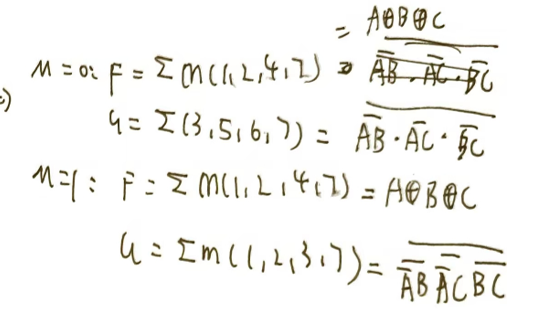 = A⊕B⊕C
M=0: F = Σm(1,2,4,7) =
G = Σ(3,5,6,7) = \overline{\overline{AB}·\overline{AC}·\overline{BC}}
M=1: F = Σm(1,2,4,7) = A⊕B⊕C
G = Σm(1,2,3,7) = \overline{\overline{\overline{A}B}\ \overline{\overline{A}C}\ \overline{BC}}